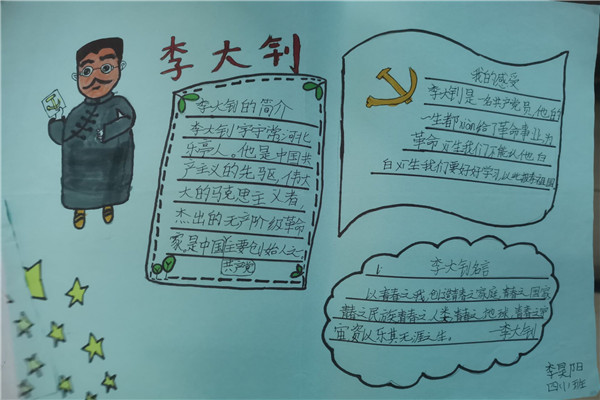 李大钊
李大钊的简介
李大钊字守常,河北
乐亭人。他是中国共
产主义的先驱,伟大
大的马克思主义者,
杰出的无产阶级革命
家,是中国主要创始人之一。
共产党
我的感受
李大钊是一名共产党员,他的
一生都xiàn给了革命事业,为
革命xī生我们不能让他白
白xī生我们要好好学习,以此报奉祖国
李大钊名言
以青春之我,创造青春之家庭,青春之国家
青春之民族,青春之人类,青春之地球,青春之宇
宙,资以乐其无涯之生。 —李大钊
李昊阳
四(1)班